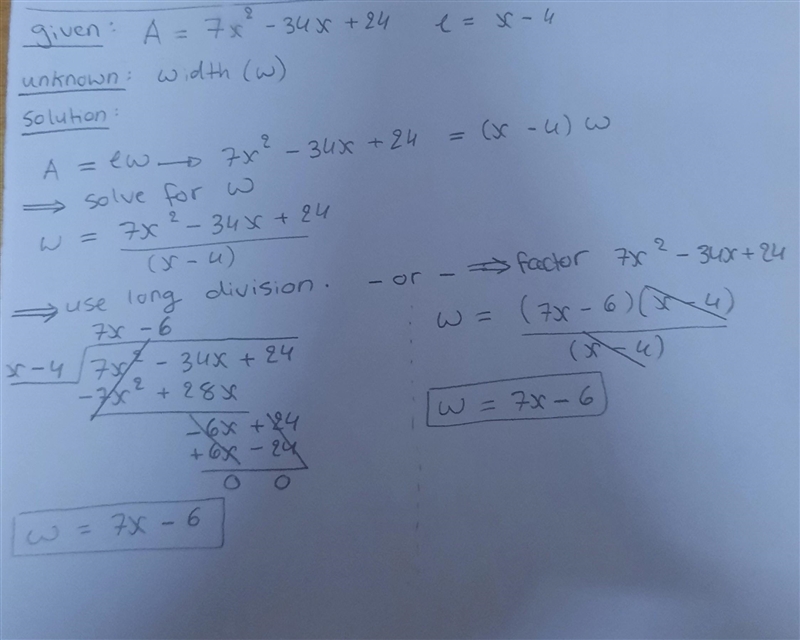 given: A = 7x² - 34x + 24 ℓ = x - 4
unknown: width (w)
solution:
A = ℓw → 7x² - 34x + 24 = (x - 4) w
⇒ solve for w
w = 7x² - 34x + 24
(x - 4)
⇒ use long division.
7x - 6
x - 4 7x² - 34x + 24
-7x² + 28x
-6x + 24
+6x - 24
0 0
w = 7x - 6
- or - ⇒ factor 7x² - 34x + 24
w = (7x - 6)(x - 4)
(x - 4)
w = 7x - 6